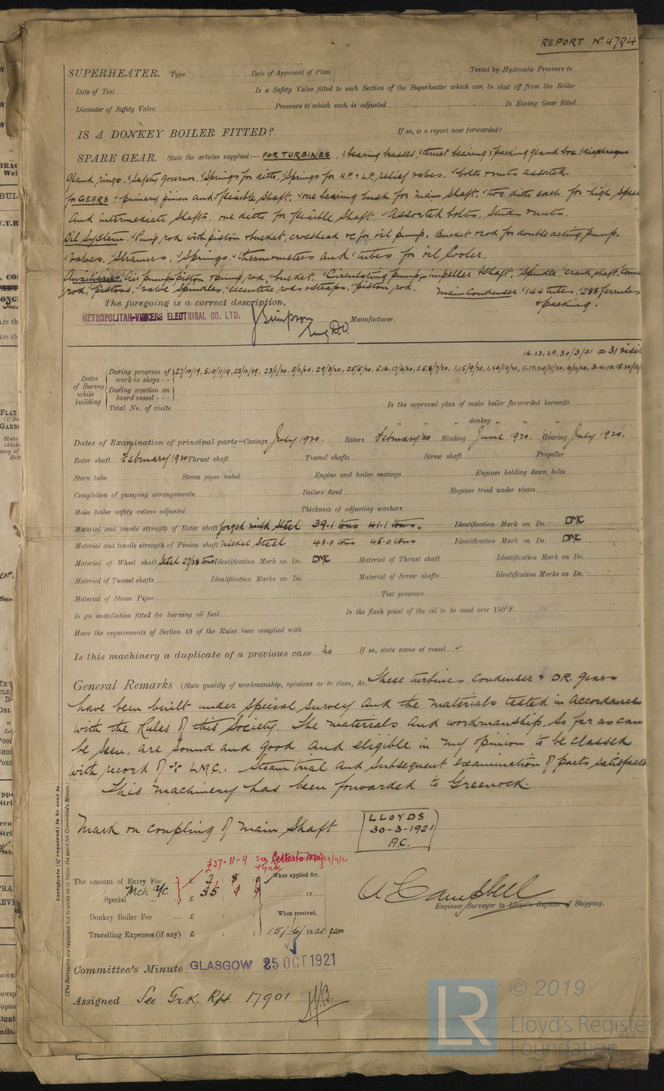 REPORT No. 4794
SUPERHEATER. Type Date of Approval of Plan Tested by Hydraulic Pressure to
Date of Test Is a Safety Valve fitted to each Section of the Superheater which can be shut off from the Boiler
Diameter of Safety Valve Pressure to which each is adjusted Is Easing Gear fitted
IS A DONKEY BOILER FITTED? If so, is a report now forwarded?
SPARE GEAR. State the articles supplied:— FOR TURBINES. bearing brasses, thrust bearing & packing gland box, diaphragm
Gland rings, Safety Governor, Springs for ditto, Springs for H.P. & L.P. relief valves. bolts & nuts assorted.
for GEARS: primary pinion and flexible shaft. one bearing bush for main shaft. two ditto each for high speed
and intermediate shafts, one ditto for flexible shaft. Assorted bolts, studs & nuts.
Oil System. Pump rod with piston & bucket, crosshead &c for oil pump. Bucket & rod for double acting pump.
Valves, Strainers, Springs. Thermometers and tubes for oil cooler.
Auxiliaries. Air pump piston & pump rod, bucket. Circulating pump, impeller & shaft, spindle crank shaft,
rods, pistons, valve spindles, eccentric rods & straps, piston rod. Main Condenser 144 tubes, 288 ferrules
& packing.
The foregoing is a correct description,
METROPOLITAN-VICKERS ELECTRICAL CO. LTD. J Simpson Manufacturer.
16.23.29.30/3/21 = 31 visits
Dates of Survey while building
During progress of work in shops - -
During erection on board vessel - - -
Total No. of visits
Is the approved plan of main boiler forwarded herewith
" " " donkey " " "
Dates of Examination of principal parts—Casings July 1920. Rotors February '20 Blading June 1920. Gearing July 1920.
Rotor shaft February 1920 Thrust shaft Tunnel shafts Screw shaft Propeller
Stern tube Steam pipes tested Engine and boiler seatings Engines holding down bolts
Completion of pumping arrangements Boilers fixed Engines tried under steam
Main boiler safety valves adjusted Thickness of adjusting washers
Material and tensile strength of Rotor shaft forged mild steel 39.1 tons 41.1 tons. Identification Mark on Do. DMK
Material and tensile strength of Pinion shaft nickel steel 43.0 tons 45.0 tons Identification Mark on Do. DMK
Material of Wheel shaft Steel 27/28 tons Identification Mark on Do. DMK Material of Thrust shaft Identification Mark on Do.
Material of Tunnel shafts Identification Marks on Do. Material of Screw shafts Identification Marks on Do.
Material of Steam Pipes Test pressure
Is an installation fitted for burning oil fuel Is the flash point of the oil to be used over 150°F.
Have the requirements of Section 49 of the Rules been complied with
Is this machinery a duplicate of a previous case No If so, state name of vessel
General Remarks (State quality of workmanship, opinions as to class, &c. These turbines, condenser & D.R. gears
have been built under special survey and the materials tested in accordance
with the Rules of this Society. The materials and workmanship, so far as can
be seen, are sound and good and eligible in my opinion to be classed
with record of + LMC. Steam trial and subsequent examination of parts satisfactory
This machinery has been forwarded to Greenock.
Mark on coupling of main shaft
LLOYDS
30-3-1921
A.C.
£37-11-9
The amount of Entry Fee £ 2 : 8 : 0 When applied for.
Special £ 35
Donkey Boiler Fee ... £ When received.
Travelling Expenses (if any) £ 15/6/1921
A Campbell
Engineer Surveyor to Lloyd's Register of Shipping.
Committee's Minute GLASGOW 25 OCT 1921
Assigned See Grk. Rpt 17901
LR © 2019
Lloyd's Register
Foundation